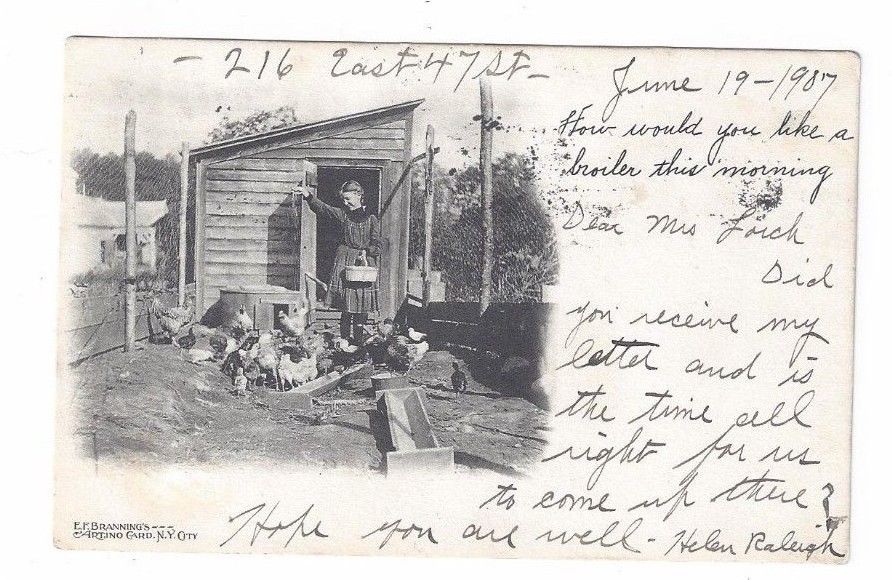 - 216 East 47 St -
June 19 - 1907
How would you like a
broiler this morning
Dear Mrs Lorch
Did
you receive my
letter and is
the time all
right for us
to come up there?
Hope you are well - Helen Raleigh
E.F. BRANNING'S ---
ARTINO CARD. N.Y. CITY